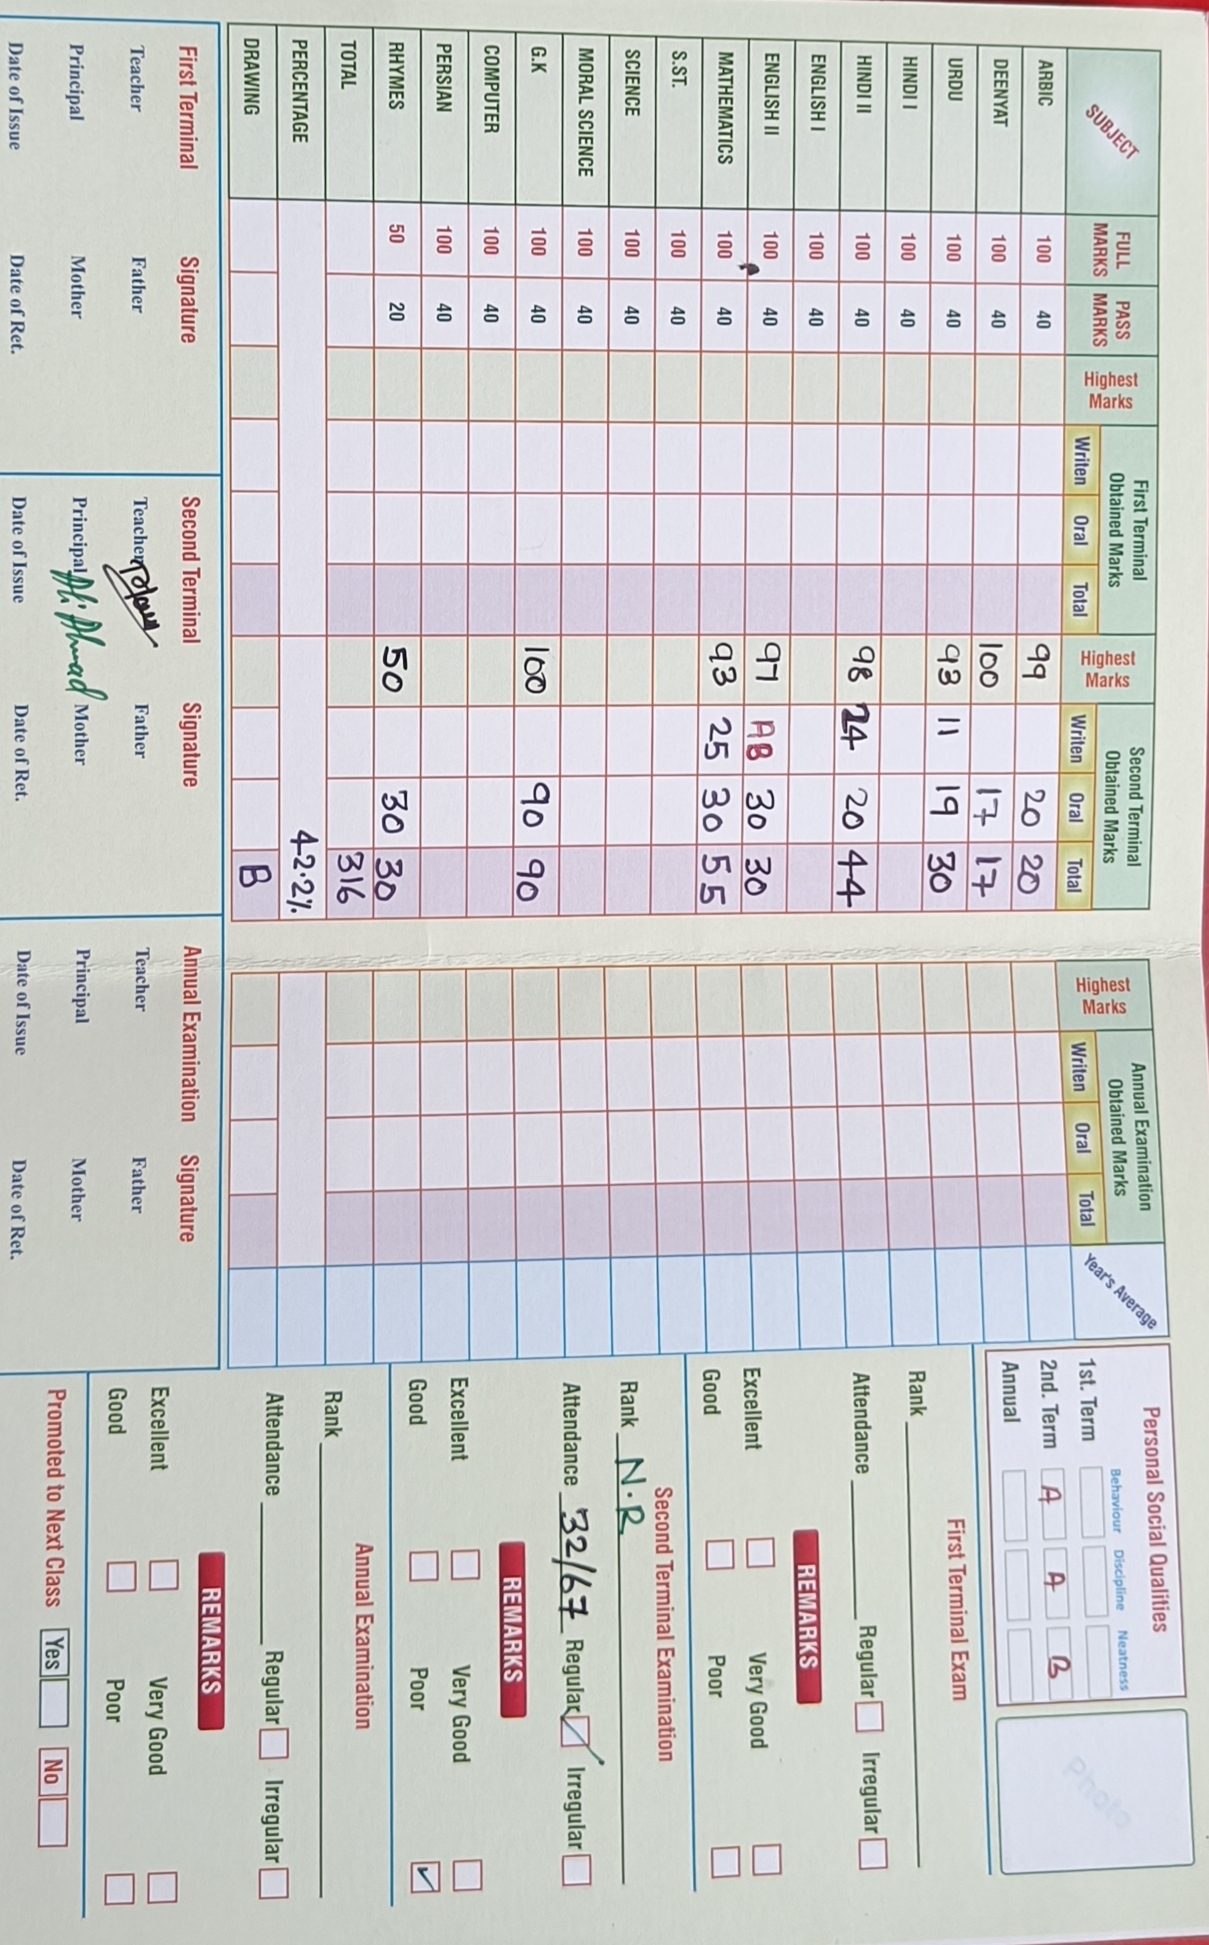 SUBJECT FULL MARKS PASS MARKS Highest Marks First Terminal Obtained Marks Highest Marks Second Terminal Obtained Marks Highest Marks Annual Examination Obtained Marks Year's Average
Writen Oral Total Writen Oral Total Writen Oral Total
ARBIC 100 40 99 20 20
DEENYAT 100 40 100 17 17
URDU 100 40 93 11 19 30
HINDI I 100 40
HINDI II 100 40 98 24 20 44
ENGLISH I 100 40
ENGLISH II 100 40 97 AB 30 30
MATHEMATICS 100 40 93 25 30 55
S.ST. 100 40
SCIENCE 100 40
MORAL SCIENCE 100 40
G.K 100 40 100 90 90
COMPUTER 100 40
PERSIAN 100 40
RHYMES 50 20 50 30 30
TOTAL 316
PERCENTAGE 42.2%
DRAWING B
First Terminal Signature
Teacher Father
Principal Mother
Date of Issue Date of Ret.
Second Terminal Signature
Teacher Father
Principal Ali Ahmad Mother
Date of Issue Date of Ret.
Annual Examination Signature
Teacher Father
Principal Mother
Date of Issue Date of Ret.
Personal Social Qualities
Behaviour Discipline Neatness
1st. Term
2nd. Term A A B
Annual
Photo
First Terminal Exam
Rank
Attendance Regular Irregular
REMARKS
Excellent Very Good
Good Poor
Second Terminal Examination
Rank N.R
Attendance 32/67 Regular Irregular
REMARKS
Excellent Very Good
Good Poor
Annual Examination
Rank
Attendance Regular Irregular
REMARKS
Excellent Very Good
Good Poor
Promoted to Next Class Yes No